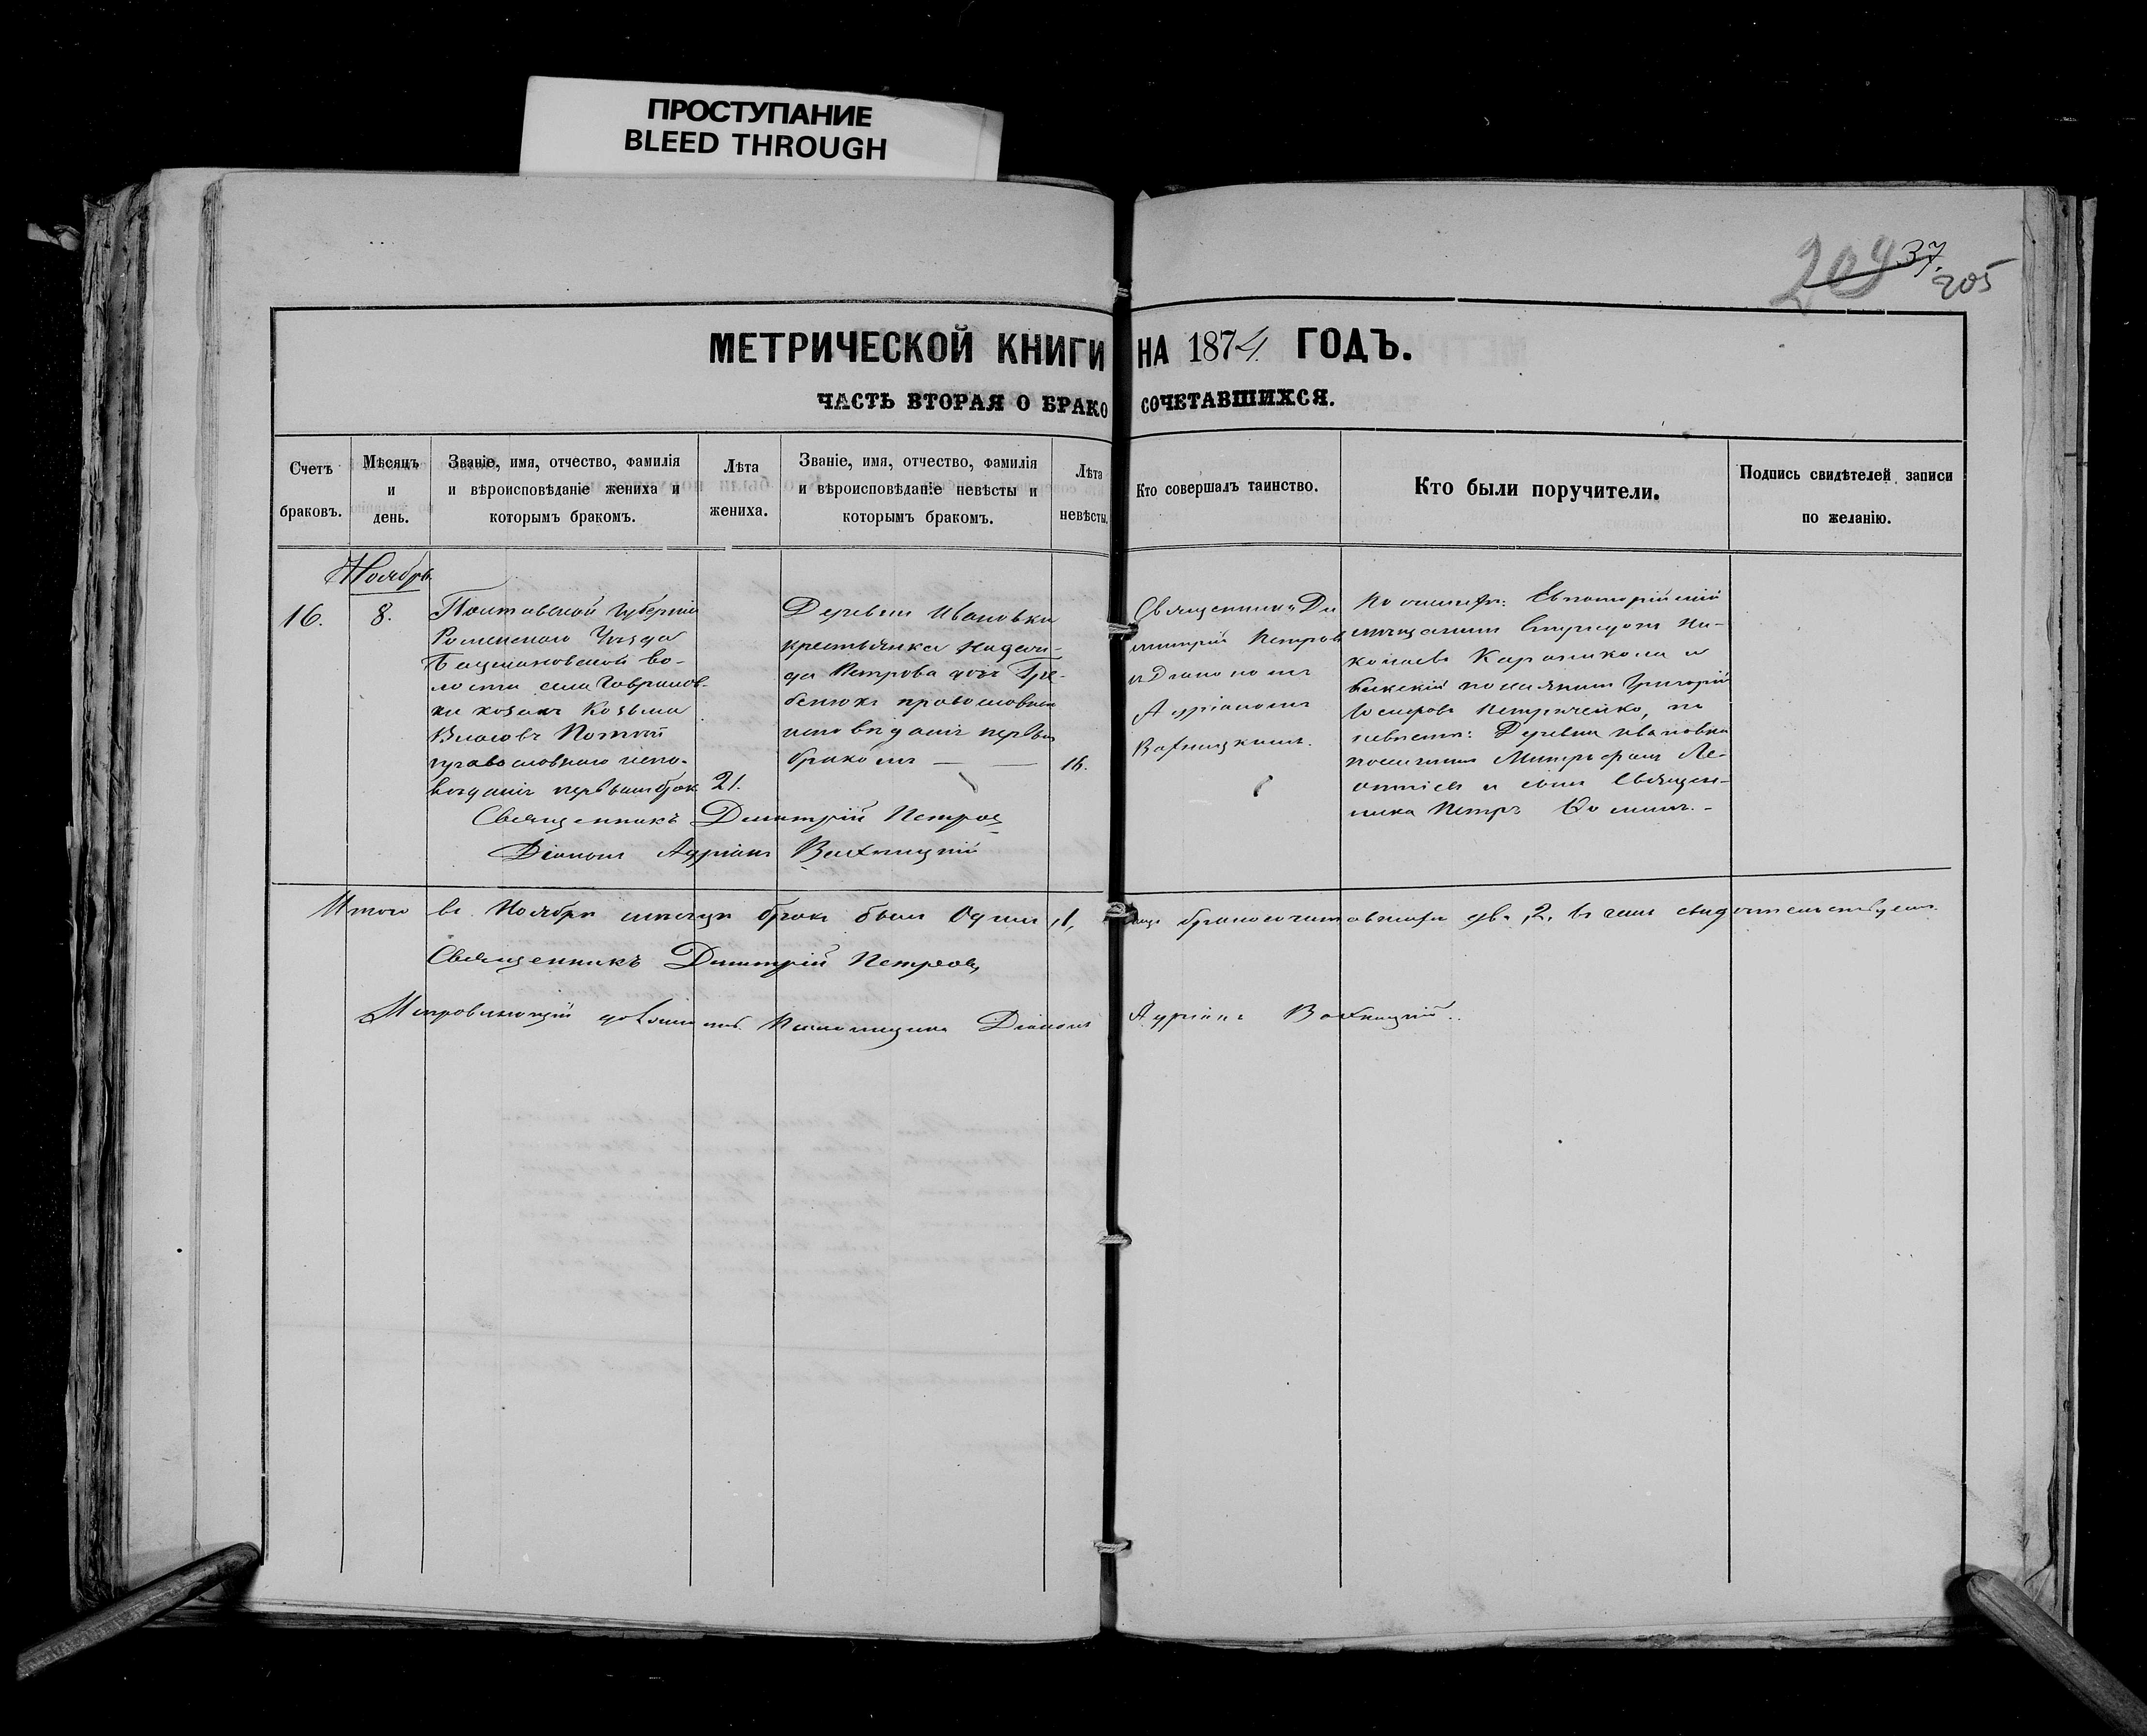 ПРОСТУПАНИЕ
BLEED THROUGH
204 37.
205
МЕТРИЧЕСКОЙ КНИГИ НА 1874 ГОДЪ.
ЧАСТЬ ВТОРАЯ О БРАКОСОЧЕТАВШИХСЯ.
Счетъ браковъ.
Мѣсяцъ и день.
Званіе, имя, отчество, фамилія
и вѣроисповѣданіе жениха и
которымъ бракомъ.
Лѣта жениха.
Званіе, имя, отчество, фамилія
и вѣроисповѣданіе невѣсты и
которымъ бракомъ.
Лѣта невѣсты.
Кто совершалъ таинство.
Кто были поручители.
Подпись свидѣтелей записи
по желанію.
Ноябрь
16.
8.
Полтавской губерніи
Роменскаго Уѣзда
во-
лости села Гаврилов-
ки козакъ Козьма
Власовъ
православнаго испо-
вѣданія первымъ брак.
21.
Деревни Ивановки
крестьянка Надеж-
да Петрова дочь Гре-
бенюкъ православнаго
исповѣданія первымъ
бракомъ
16.
Священникъ Ди
митрій Петровъ
съ Діакономъ
Адріаномъ
По женихѣ: Евпаторійскій
мѣщанинъ Спиридонъ Ни-
колаевъ и
поселянинъ Григорій
Петриченко, по
невѣстѣ: Деревни Ивановки
поселянинъ Митрофанъ Ле-
онтіевъ и сынъ Священ-
ника Петръ
Священникъ Димитрій Петровъ
Діаконъ Адріанъ
Итого въ Ноябрѣ мѣсяцѣ бракъ былъ Одинъ, 1, лицъ бракосочетавшихся два, 2, въ чемъ свидѣтельствуемъ
Священникъ Димитрій Петровъ
Исправляющій должность Псаломщика Діаконъ Адріанъ